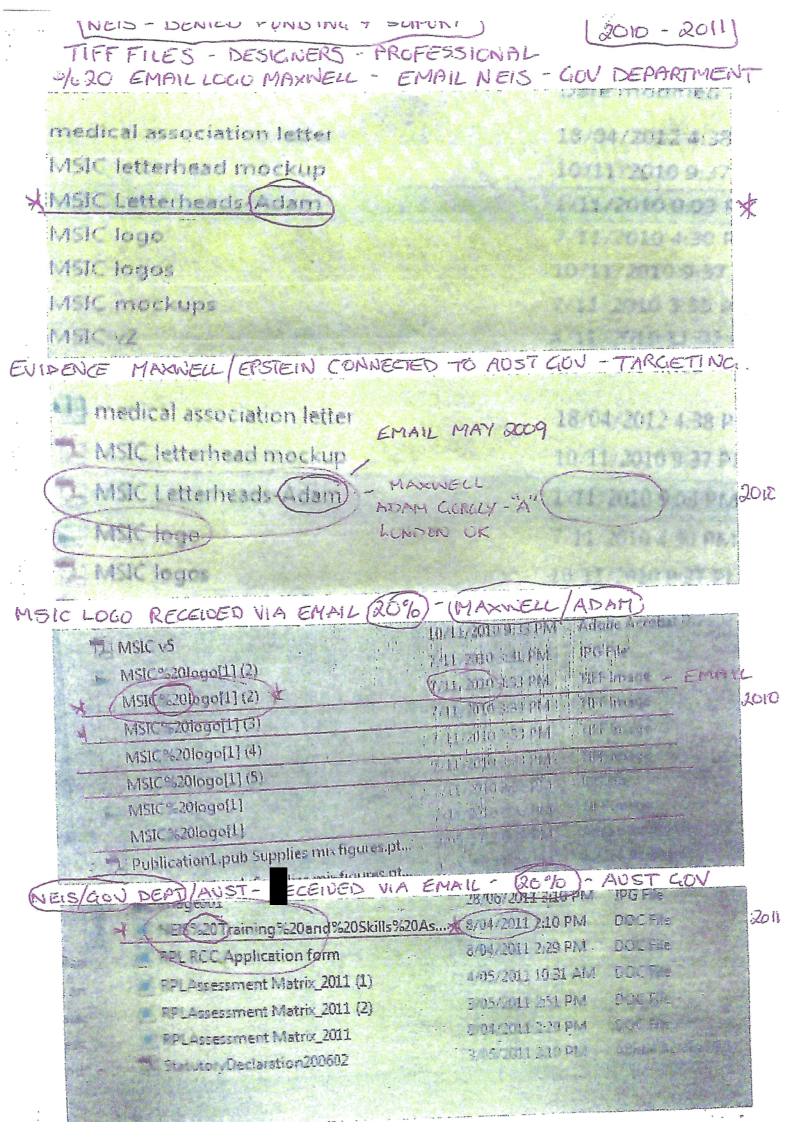 (NEIS - DENIED FUNDING & SUPPORT) (2010 - 2011)
TIFF FILES - DESIGNERS - PROFESSIONAL
%20 EMAIL LOGO MAXWELL - EMAIL NEIS - GOV DEPARTMENT
Date modified
medical association letter 18/04/2012 4:38
MSIC letterhead mockup 10/11/2010 9:37
MSIC Letterheads-Adam /11/2010 9:03
MSIC logo 7/11/2010 4:30 P
MSIC logos 10/11/2010 9:37
MSIC mockups 7/11/2010 3:55
MSIC v2
EVIDENCE MAXWELL/EPSTEIN CONNECTED TO AUST GOV - TARGETING.
medical association letter 18/04/2012 4:38 P
EMAIL MAY 2009
MSIC letterhead mockup 10/11/2010 9:37 P
MSIC Letterheads-Adam - MAXWELL /11/2010 9:03 PM 2010
ADAM - "A"
MSIC logo LONDON UK 7/11/2010 4:30 PM
MSIC logos
MSIC LOGO RECEIVED VIA EMAIL (20%) - (MAXWELL/ADAM)
MSIC v5 10/11/2010 9:13 PM
MSIC%20logo[1] (2) JPG File
MSIC%20logo[1] (2) 7/11/2010 3:53 PM TIFF Image - EMAIL
2010
MSIC%20logo[1] (3) TIFF Image
MSIC%20logo[1] (4)
MSIC%20logo[1] (5)
MSIC%20logo[1]
MSIC%20logo[1]
Publication1.pub Supplies mix figures.pt...
NEIS/GOV DEPT/AUST- ECEIVED VIA EMAIL - (20%) - AUST GOV
28/06/2011 3:10 PM JPG File
NEIS%20Training%20and%20Skills%20As... 8/04/2011 2:10 PM DOC File 2011
RPL RCC Application form 8/04/2011 2:29 PM DOC File
RPLAssessment Matrix_2011 (1) 4/05/2011 10:31 AM DOC File
RPLAssessment Matrix_2011 (2) 3/05/2011 2:51 PM DOC File
RPLAssessment Matrix_2011 8/04/2011 2:29 PM DOC File
StatutoryDeclaration200602 3/05/2011 3:10 PM